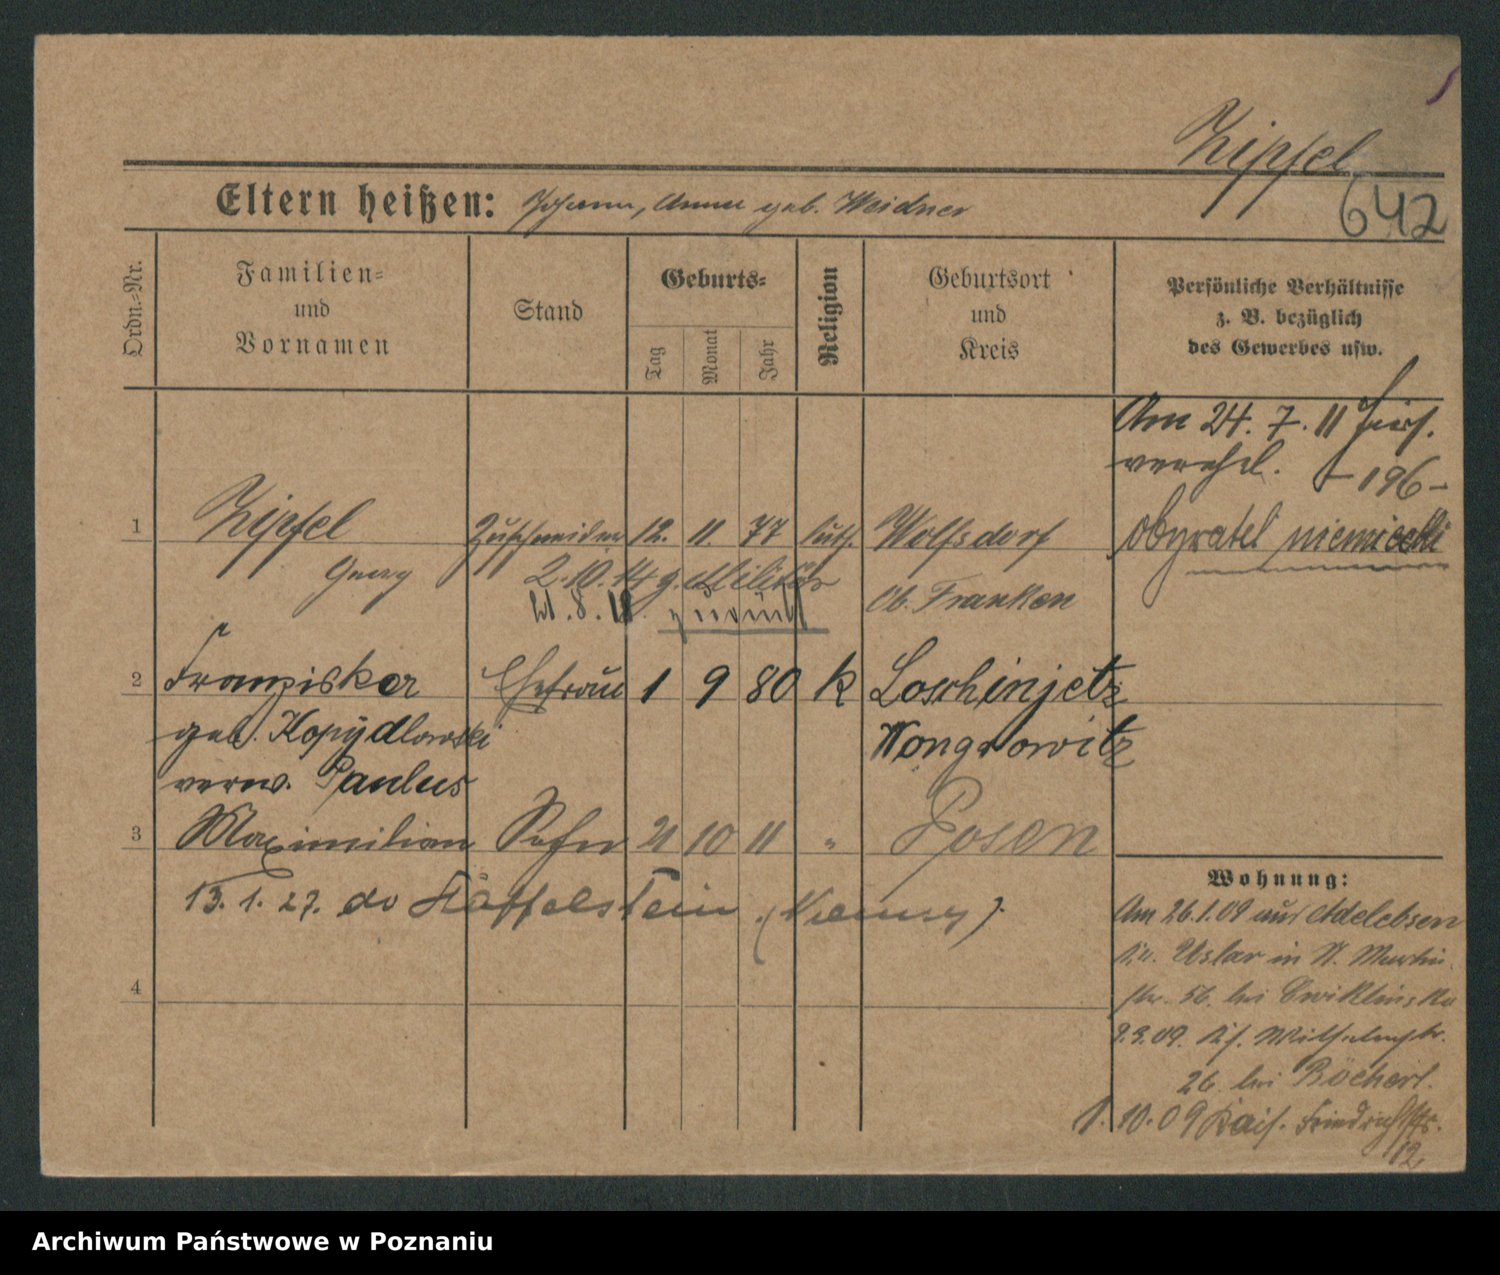 Zipfel
642
Eltern heißen: Johann, Anna geb. Weidner
Ordn.-Nr.
Familien-
und
Vornamen
Stand
Geburts-
Tag
Monat
Jahr
Religion
Geburtsort
und
Kreis
Persönliche Verhältnisse
z. B. bezüglich
des Gewerbes usw.
Am 24. 7. 11 hier
verehel. - 196 -
obywatel niemiecki
1 Zipfel Zuschneider 12. 11. 77 luth. Wolfsdorf
Georg 2.10.14 z. Militär Ob. Franken
21.8.18 zurück
2 Franziska Ehefrau 1 9 80 k Loschinjetz
geb. Kopydlowski Wongrowitz
verw. Paulus
3 Maximilian Sohn 21 10 11 " Posen
13. 1. 27. do Staffelstein (Niemcy).
4
Wohnung:
Am 26.1.09 aus Adelebsen
Kr. Uslar in St. Martin
str. 56. bei Cwiklinska
9.9.09. Wilhelmstr.
26 bei Böcherl.
1. 10. 09 Kais. Friedrichstr.
12
Archiwum Państwowe w Poznaniu